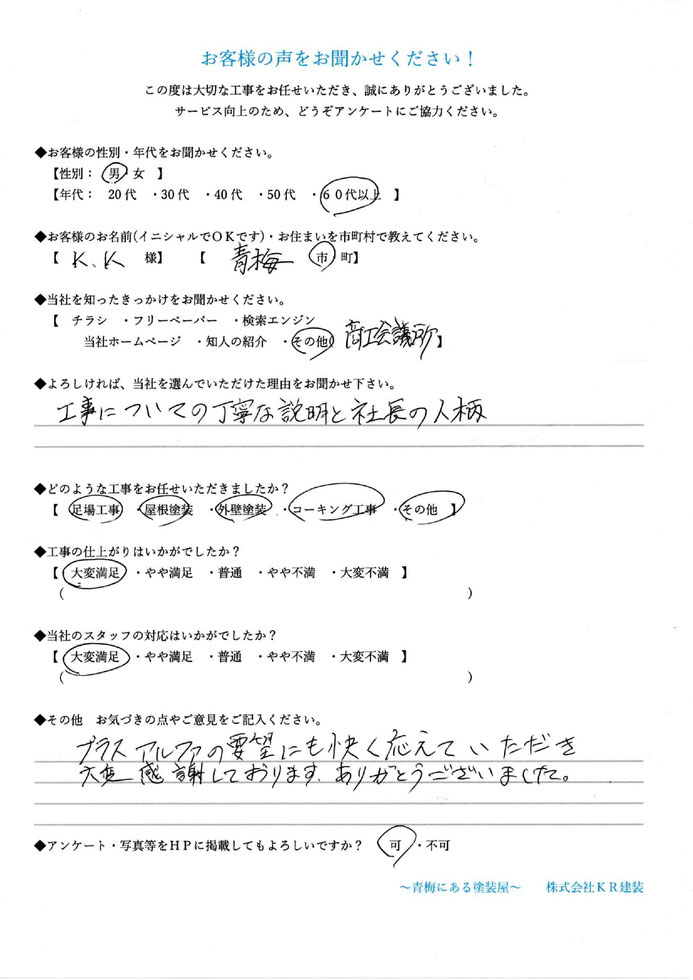 お客様の声をお聞かせください！
この度は大切な工事をお任せいただき、誠にありがとうございました。
サービス向上のため、どうぞアンケートにご協力ください。
◆お客様の性別・年代をお聞かせください。
【性別： 男 女 】
【年代： 20代 ・30代 ・40代 ・50代 ・60代以上 】
◆お客様のお名前(イニシャルでOKです)・お住まいを市町村で教えてください。
【 K.K 様】 【 青梅 市 町】
◆当社を知ったきっかけをお聞かせください。
【 チラシ ・フリーペーパー ・検索エンジン
当社ホームページ ・知人の紹介 ・その他( 商工会議所 】
◆よろしければ、当社を選んでいただけた理由をお聞かせ下さい。
工事についての丁寧な説明と社長の人柄
◆どのような工事をお任せいただきましたか？
【 足場工事 ・屋根塗装 ・外壁塗装 ・コーキング工事 ・その他 】
◆工事の仕上がりはいかがでしたか？
【 大変満足 ・やや満足 ・普通 ・やや不満 ・大変不満 】
( )
◆当社のスタッフの対応はいかがでしたか？
【 大変満足 ・やや満足 ・普通 ・やや不満 ・大変不満 】
( )
◆その他　お気づきの点やご意見をご記入ください。
プラスアルファの要望にも快く応えていただき
大変感謝しております。ありがとうございました。
◆アンケート・写真等をHPに掲載してもよろしいですか？ 可 ・不可
～青梅にある塗装屋～ 株式会社KR建装